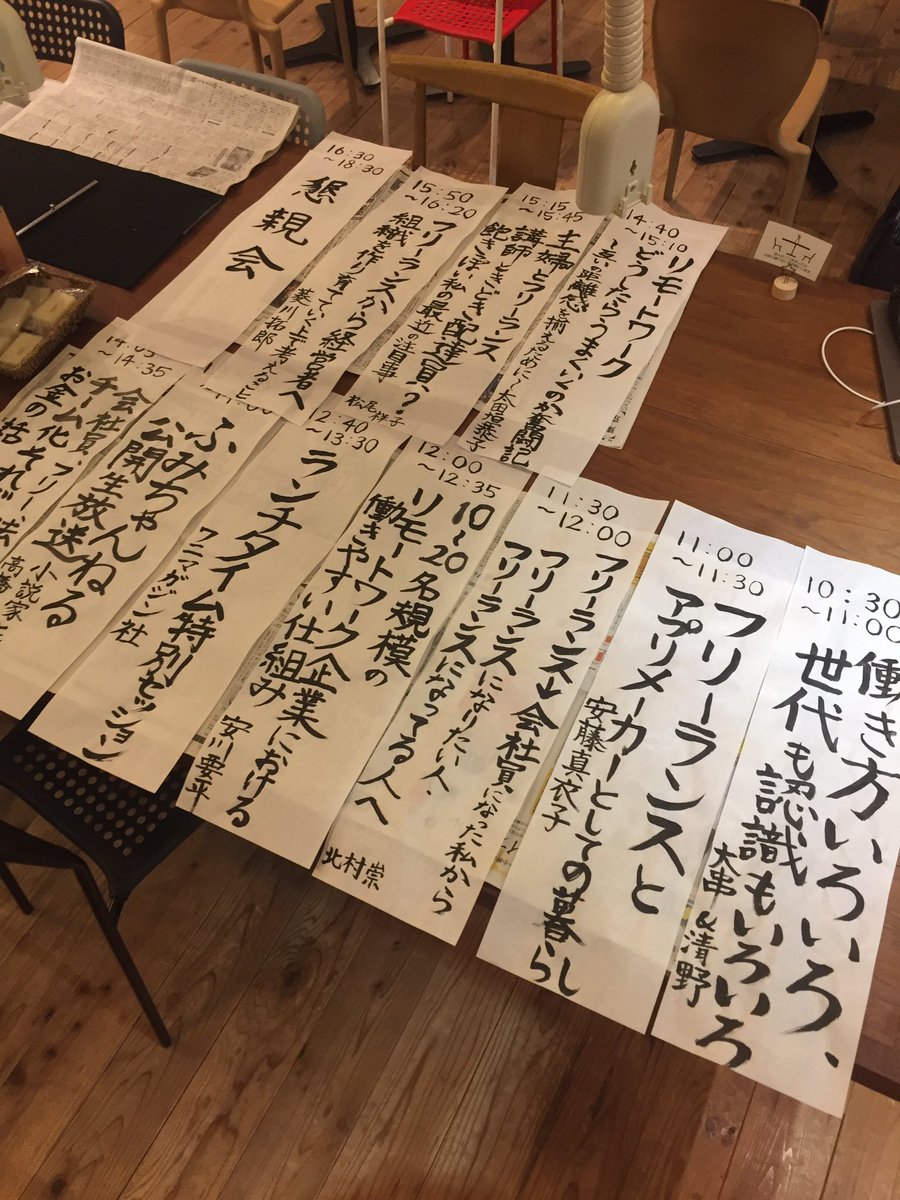 10:30
~11:00
働き方いろいろ、
世代も認識もいろいろ
大串&清野
11:00
~11:30
フリーランスと
アプリメーカーとしての暮らし
安藤真衣子
11:30
~12:00
フリーランス→会社員になった私から
フリーランスになりたい人・
フリーランスになってる人へ
北村崇
12:00
~12:35
10~20名規模の
リモートワーク企業における
働きやすい仕組み
安川要平
12:40
~13:30
ランチタイム特別セッション
ワニマガジン社
ふみちゃんねる
公開生放送
小説家
14:05
~14:35
会社員、フリー、法
お金の話
14:40
~15:10
リモートワーク
どうしたらうまくいくのか奮闘記
~互いの距離感を揃えるために~
太田垣恭子
15:15
~15:45
主婦とフリーランス
講師ときどき配達員?
飽きっぽい私の最近の注目事
松尾祥子
15:50
~16:20
フリーランスから経営者へ
組織を作り育てていく上で考えること
拓郎
16:30
~18:30
懇親会